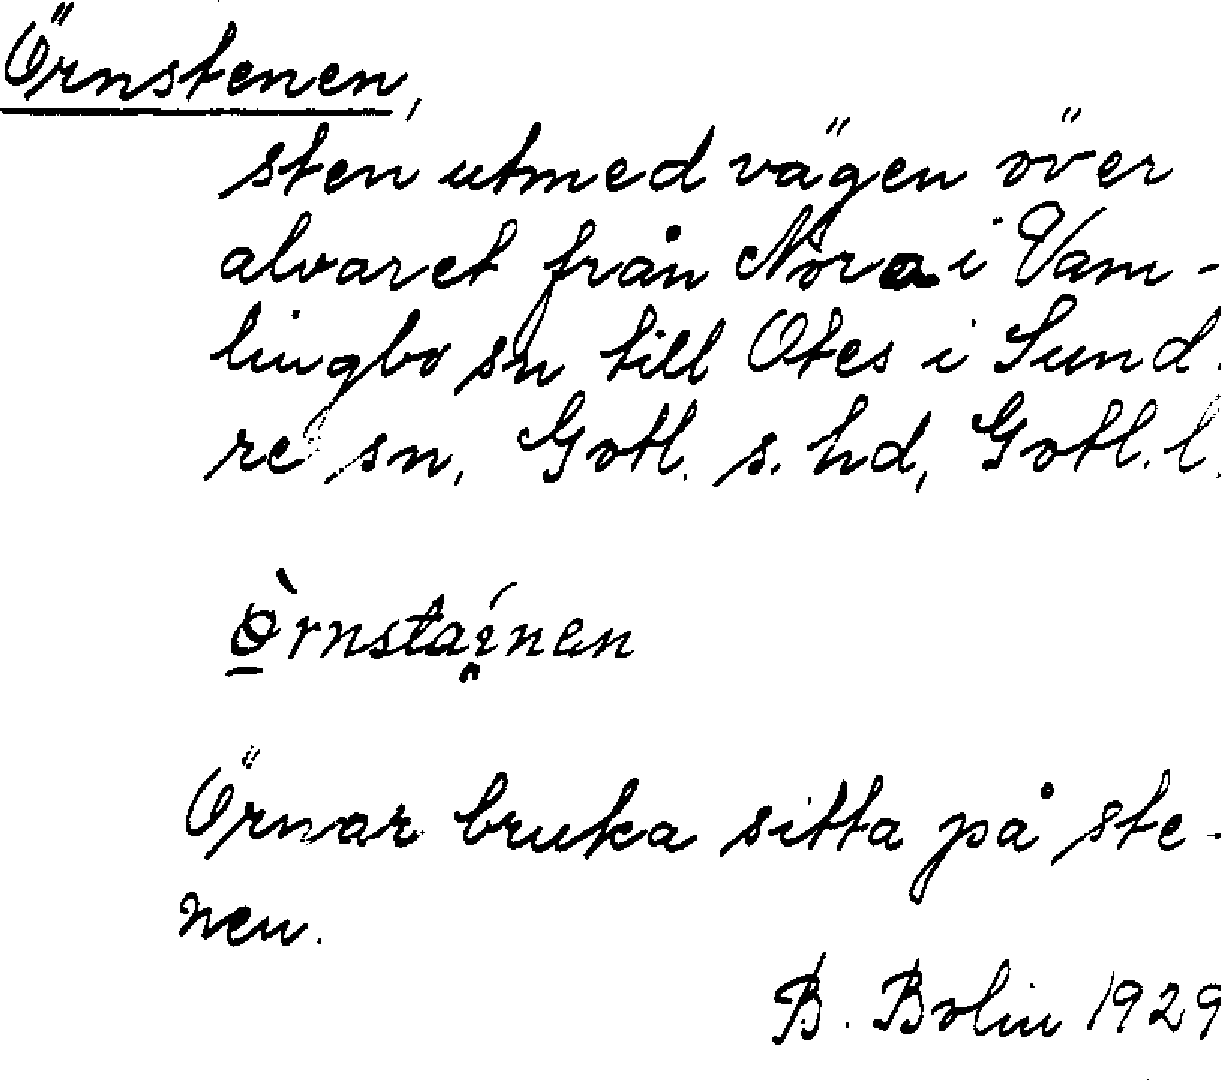 Örnstenen,
sten utmed vägen över
alvaret från Nora i Vam-
lingbo sn till Otes i Sund-
re sn, Gotl. s. hd, Gotl. l.
Ö̀rnstaínen
Örnar bruka sitta på ste-
nen.
B. Bolin 1929